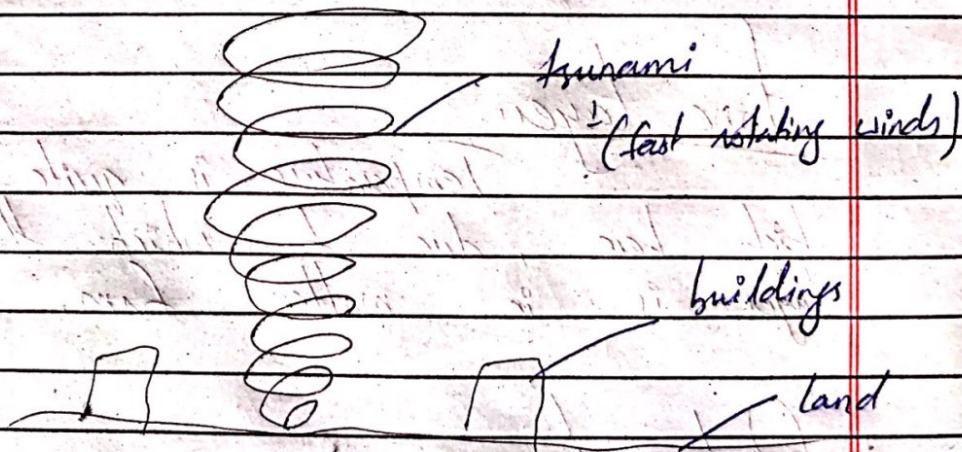 tsunami
(fast rotating winds)
buildings
land